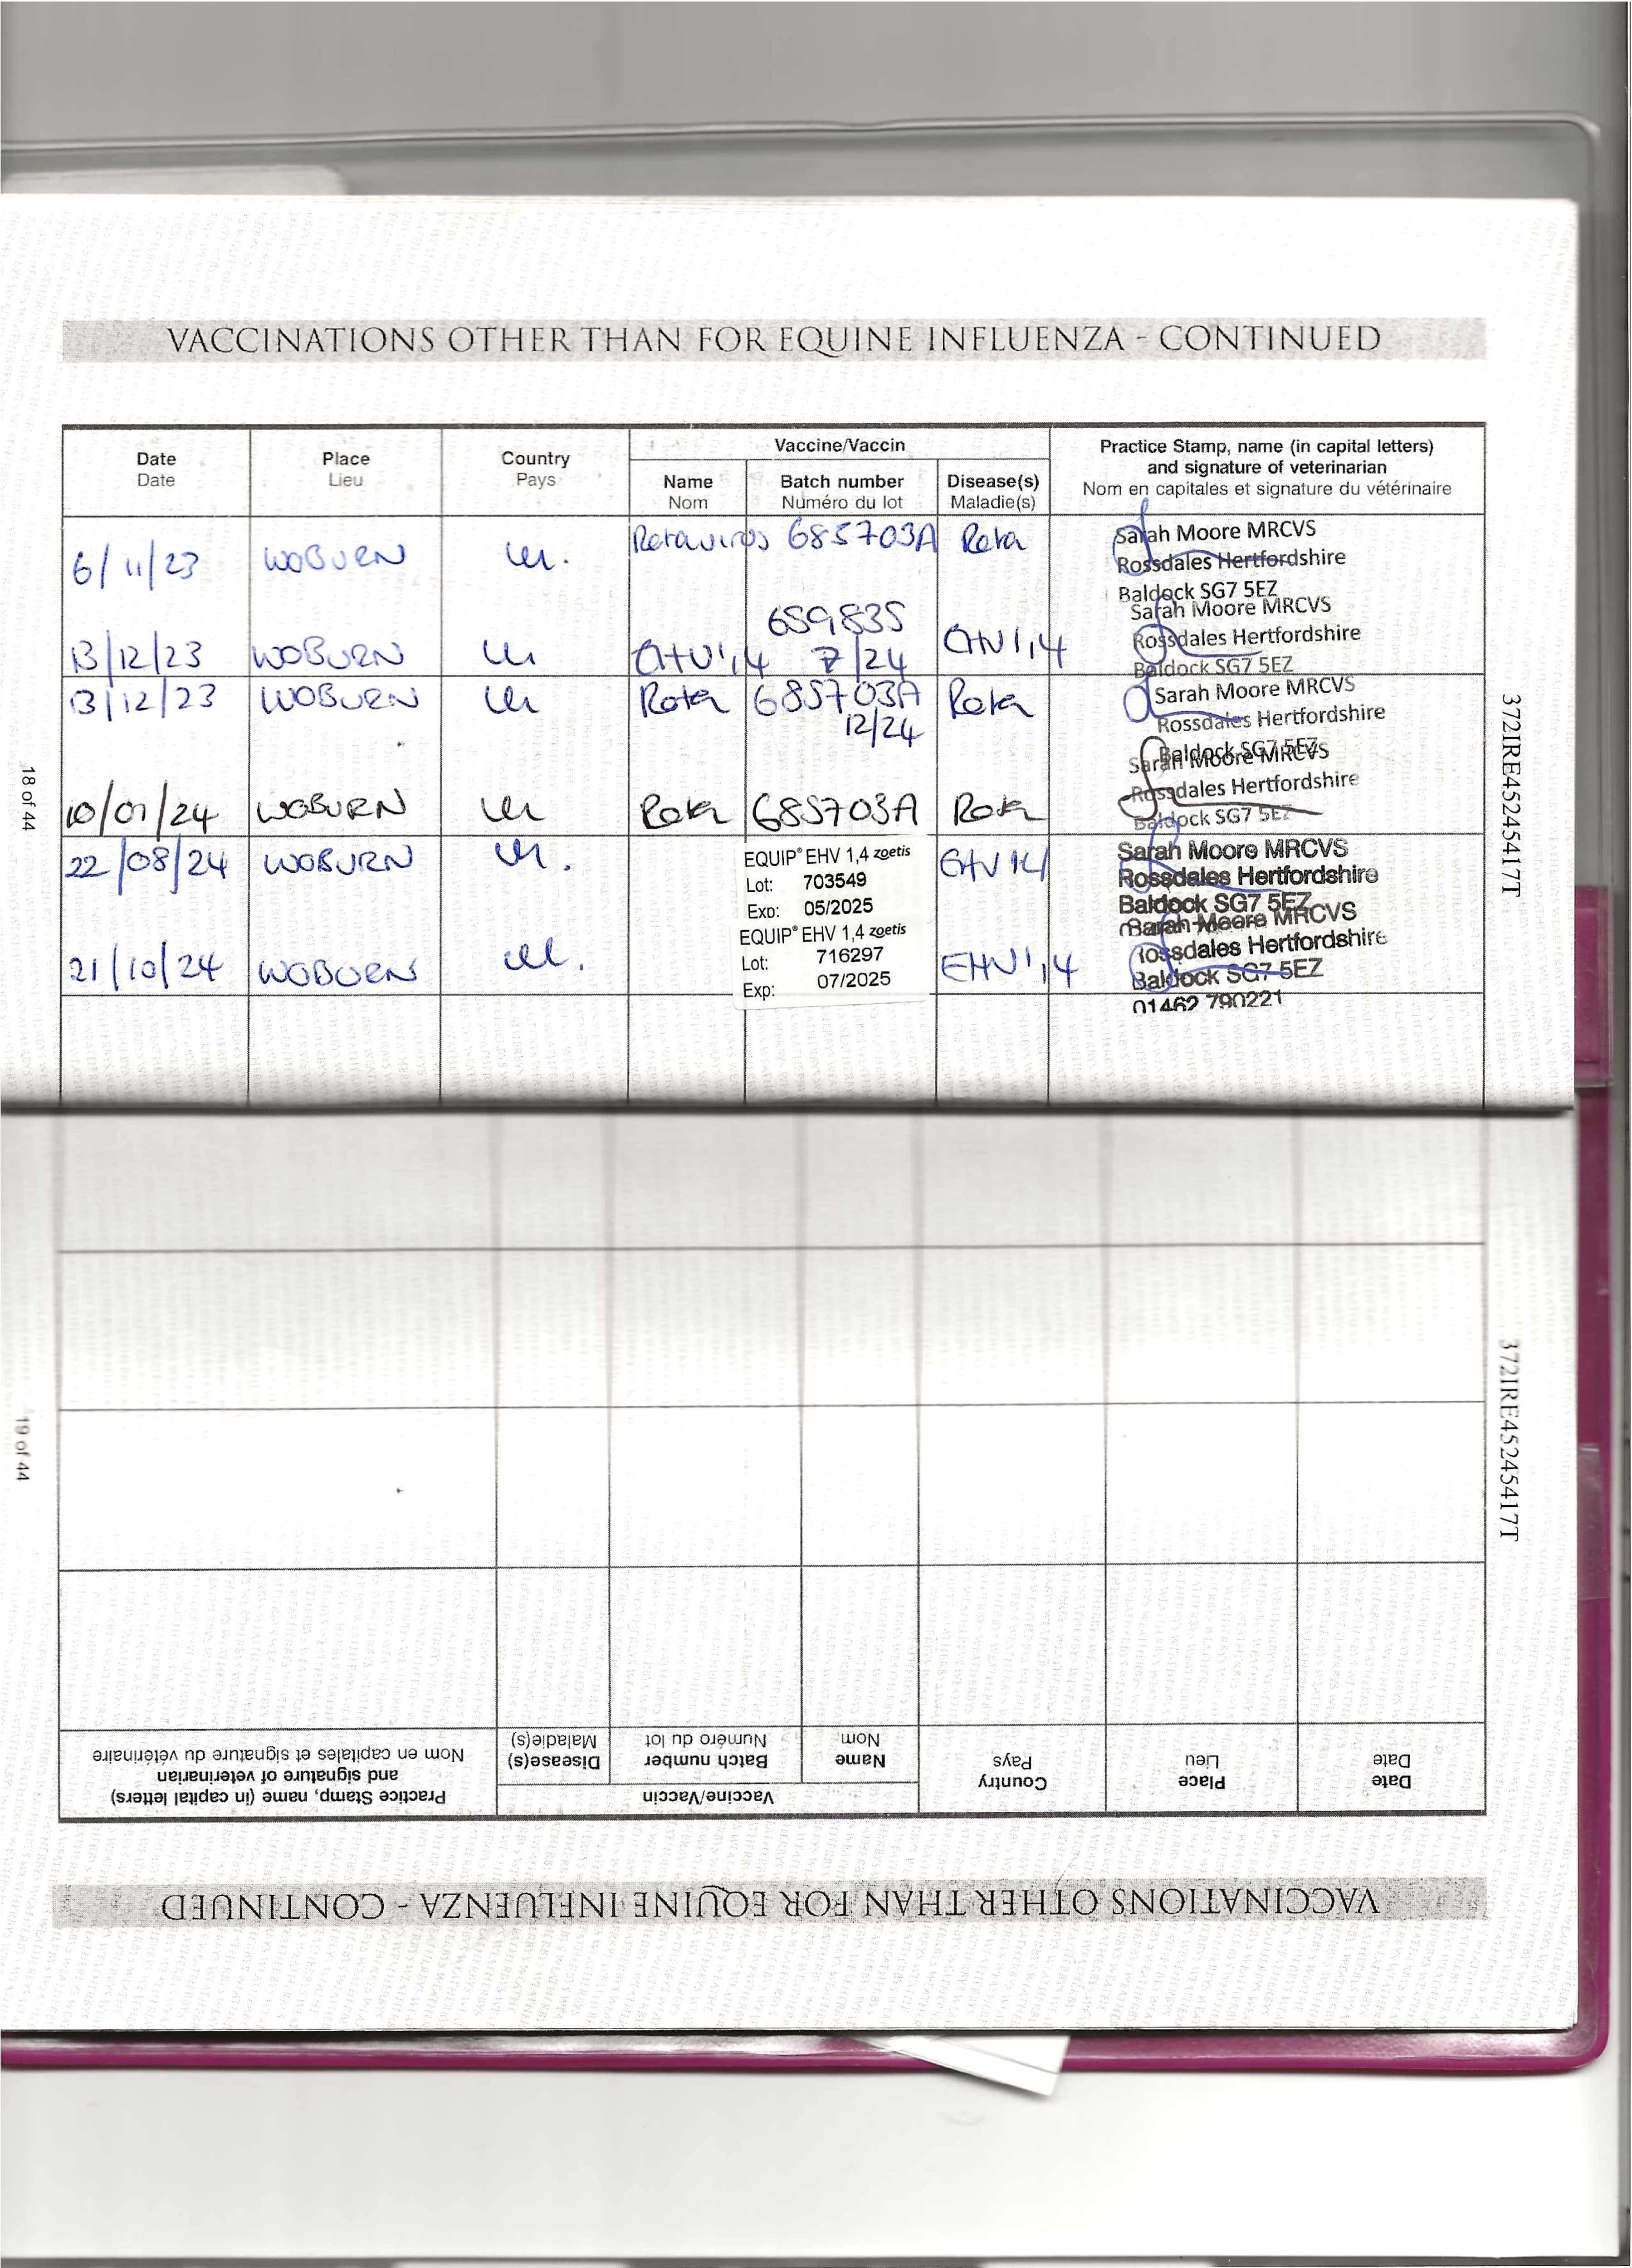 VACCINATIONS OTHER THAN FOR EQUINE INFLUENZA - CONTINUED
Date Place Country Vaccine/Vaccin Practice Stamp, name (in capital letters)
Date Lieu Pays Name Batch number Disease(s) and signature of veterinarian
Nom Numéro du lot Maladie(s) Nom en capitales et signature du vétérinaire
6/11/23 WOBURN UK. Rotavirus 685703A Rota Sarah Moore MRCVS
Rossdales Hertfordshire
Baldock SG7 5EZ
659835 Sarah Moore MRCVS
13/12/23 WOBURN UK EHV1,4 7/24 EHV1,4 Rossdales Hertfordshire
Baldock SG7 5EZ
13/12/23 WOBURN UK Rota 685703A Rota Sarah Moore MRCVS
12/24 Rossdales Hertfordshire
Baldock SG7 5EZ
Sarah Moore MRCVS
10/01/24 WOBURN UK Rota 685703A Rota Rossdales Hertfordshire
Baldock SG7 5EZ
22/08/24 WOBURN UK. EQUIP® EHV 1,4 zoetis EHV 1,4 Sarah Moore MRCVS
Lot: 703549 Rossdales Hertfordshire
Exp: 05/2025 Baldock SG7 5EZ
EQUIP® EHV 1,4 zoetis Sarah Moore MRCVS
21/10/24 WOBURN UK. Lot: 716297 EHV1,4 Rossdales Hertfordshire
Exp: 07/2025 Baldock SG7 5EZ
01462 790221
372IRE45245417T
18 of 44
VACCINATIONS OTHER THAN FOR EQUINE INFLUENZA - CONTINUED
Date Place Country Vaccine/Vaccin Practice Stamp, name (in capital letters)
Date Lieu Pays Name Batch number Disease(s) and signature of veterinarian
Nom Numéro du lot Maladie(s) Nom en capitales et signature du vétérinaire
372IRE45245417T
19 of 44